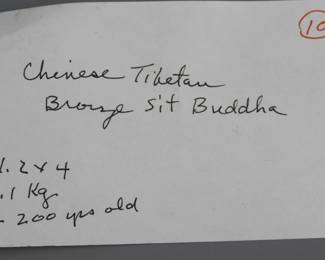 10
Chinese Tibetan
Bronze Sit Buddha
1.2 x 4
.1 Kg
200 yrs old